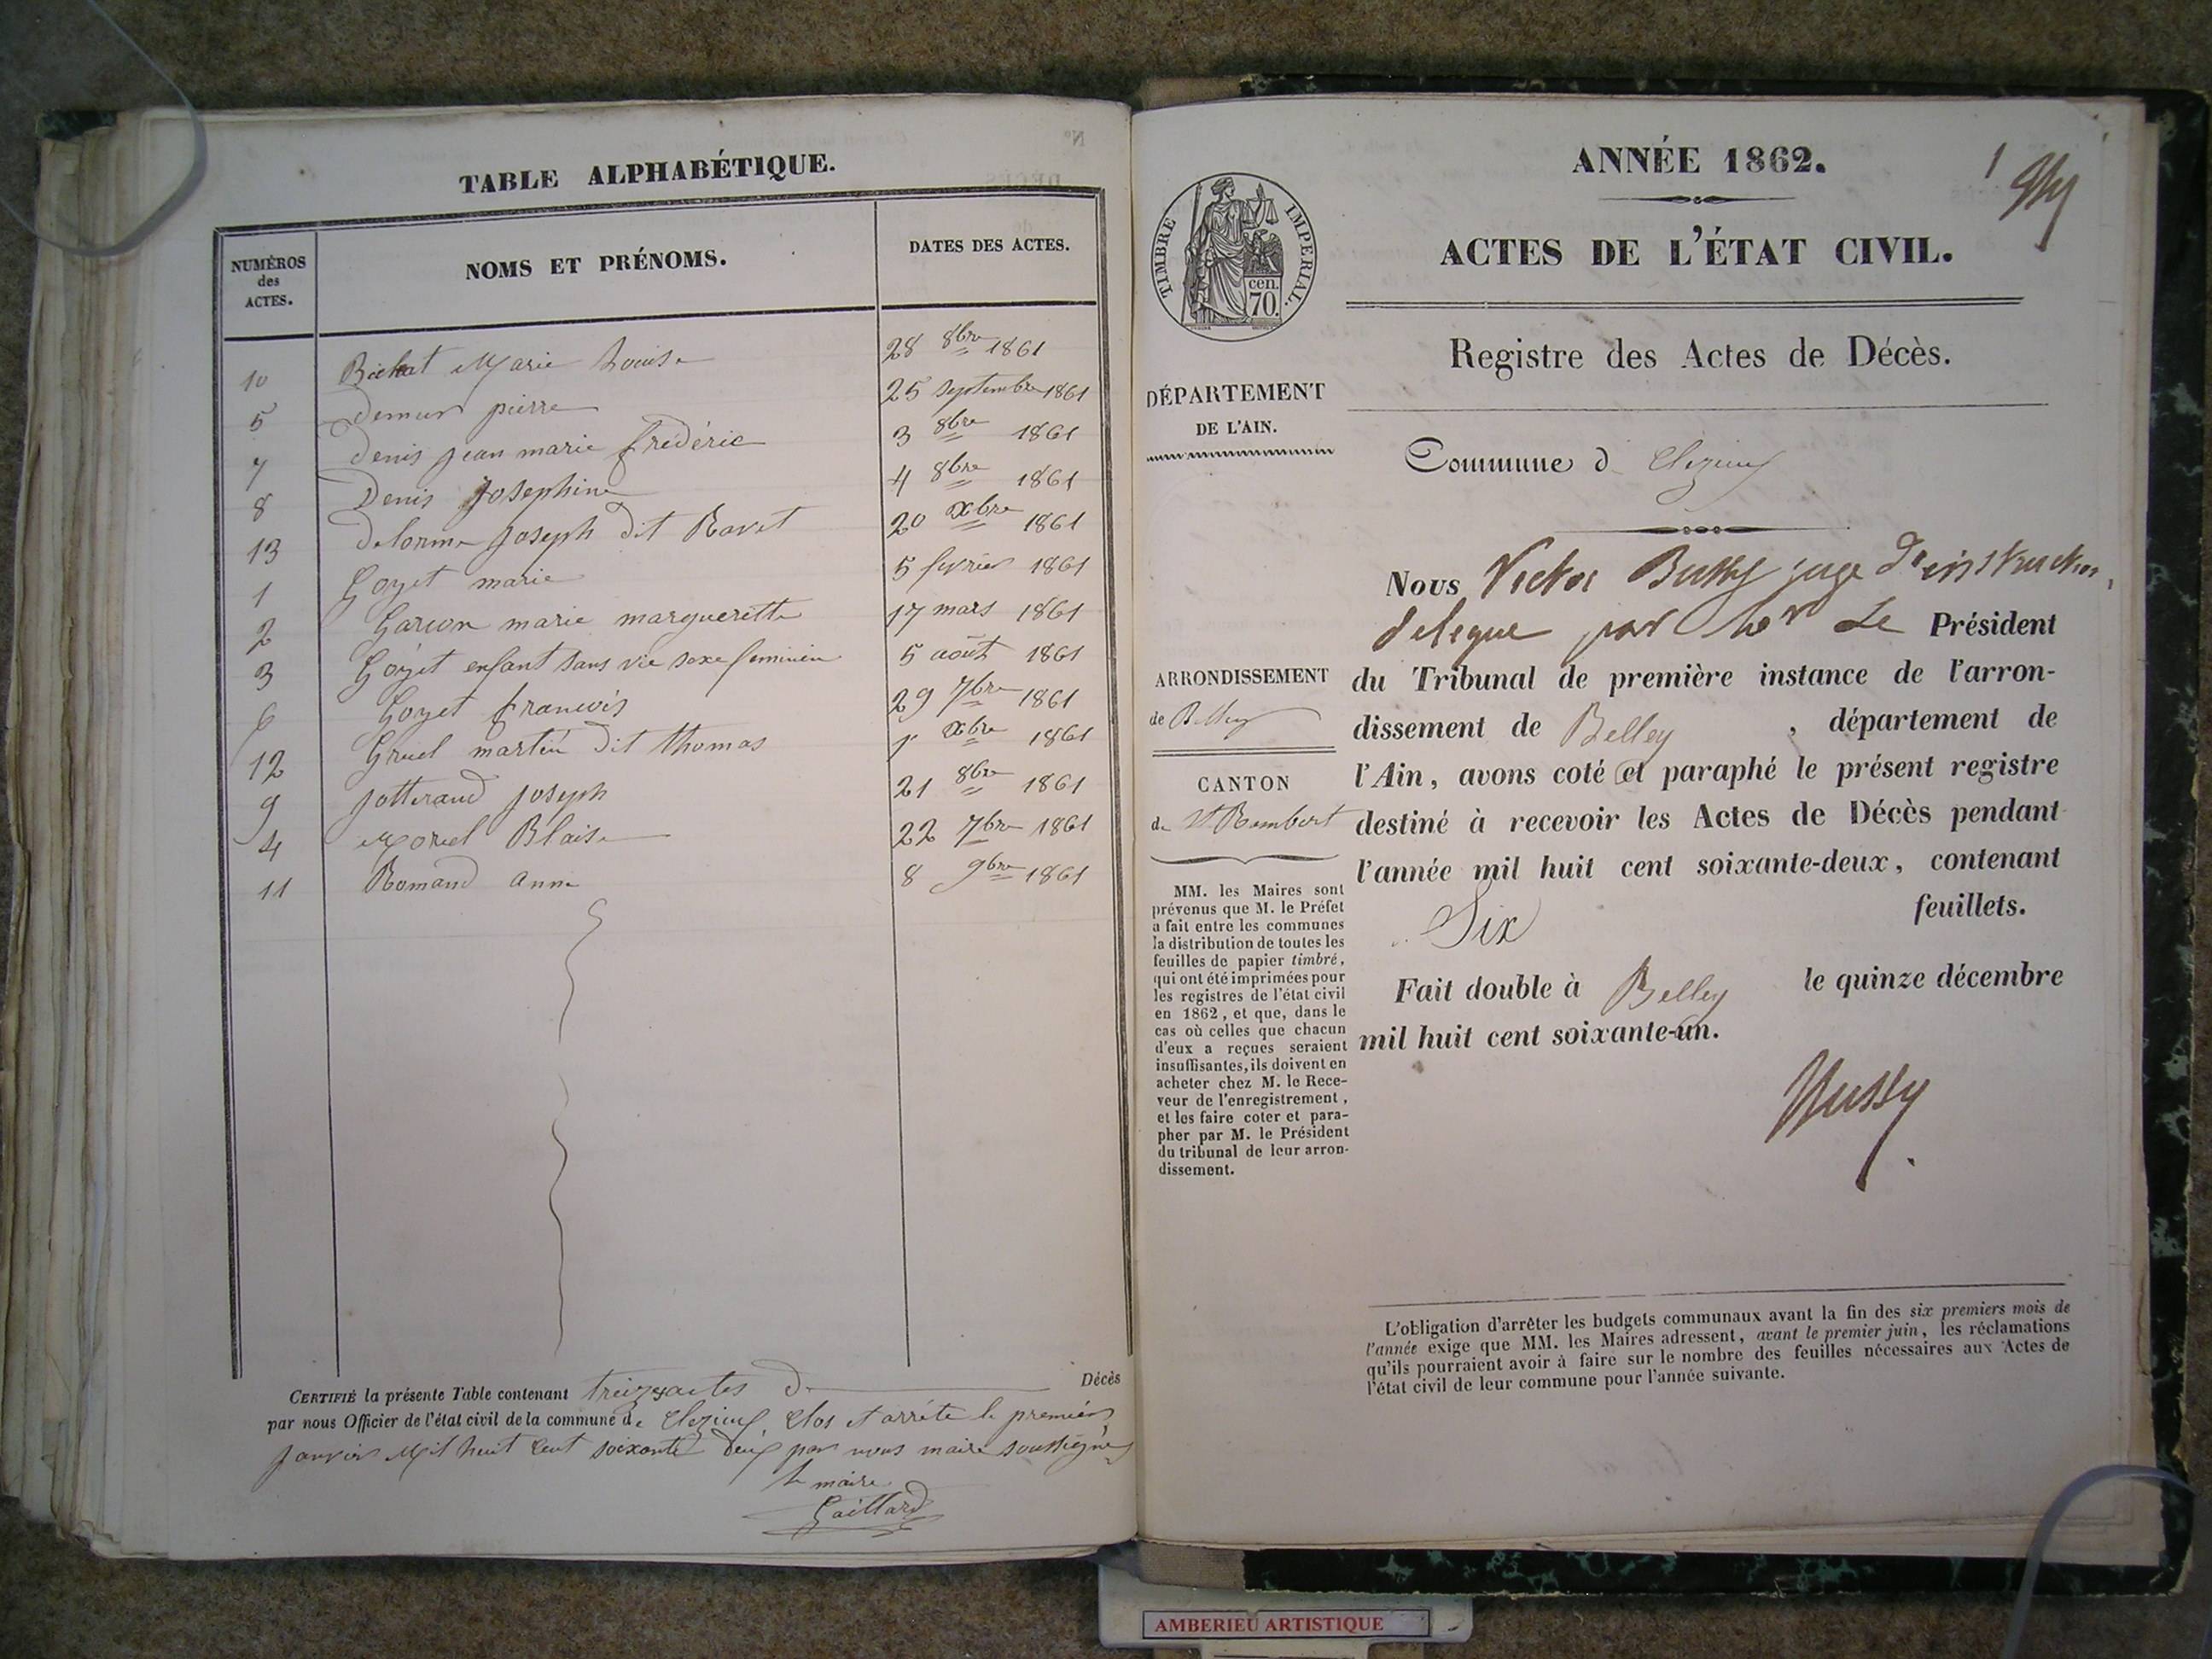 TABLE ALPHABÉTIQUE.
NUMÉROS des ACTES. NOMS ET PRÉNOMS. DATES DES ACTES.
10 Bichat Marie Louise 28 8bre 1861
5 Demur pierre 25 septembre 1861
7 Denis jean marie frédéric 3 8bre 1861
8 Denis Josephine 4 8bre 1861
13 Delorme Joseph dit Ravet 20 xbre 1861
1 Goyet marie 5 fevrier 1861
2 Garcon marie marguerette 17 mars 1861
3 Goyet enfant sans vie sexe feminin 5 août 1861
6 Goyet francois 29 7bre 1861
12 Gruel martin dit thomas 1er xbre 1861
9 Jotterand joseph 21 8bre 1861
4 Morel Blaise 22 7bre 1861
11 Romand anne 8 9bre 1861
CERTIFIÉ la présente Table contenant treize actes de Décès
par nous Officier de l'état civil de la commune de Clezieu Clos et arrété le premier
Janvier Mil huit Cent soixante deux par nous maire soussigné
Le maire
Gaillard
ANNÉE 1862.
1
ACTES DE L'ÉTAT CIVIL.
TIMBRE IMPERIAL.
cen. 70.
Registre des Actes de Décès.
DÉPARTEMENT
DE L'AIN.
Commune d Clezieu
Nous Victor Bussy juge d'instruction,
delegue par Mr Le Président
du Tribunal de première instance de l'arron-
dissement de Belley, département de
l'Ain, avons coté et paraphé le présent registre
destiné à recevoir les Actes de Décès pendant
l'année mil huit cent soixante-deux, contenant
Six feuillets.
Fait double à Belley le quinze décembre
mil huit cent soixante-un.
Bussy
ARRONDISSEMENT
de Belley
CANTON
de St Rambert
MM. les Maires sont
prévenus que M. le Préfet
a fait entre les communes
la distribution de toutes les
feuilles de papier timbré,
qui ont été imprimées pour
les registres de l'état civil
en 1862, et que, dans le
cas où celles que chacun
d'eux a reçues seraient
insuffisantes, ils doivent en
acheter chez M. le Rece-
veur de l'enregistrement,
et les faire coter et para-
pher par M. le Président
du tribunal de leur arron-
dissement.
L'obligation d'arrêter les budgets communaux avant la fin des six premiers mois de
l'année exige que MM. les Maires adressent, avant le premier juin, les réclamations
qu'ils pourraient avoir à faire sur le nombre des feuilles nécessaires aux Actes de
l'état civil de leur commune pour l'année suivante.
AMBERIEU ARTISTIQUE